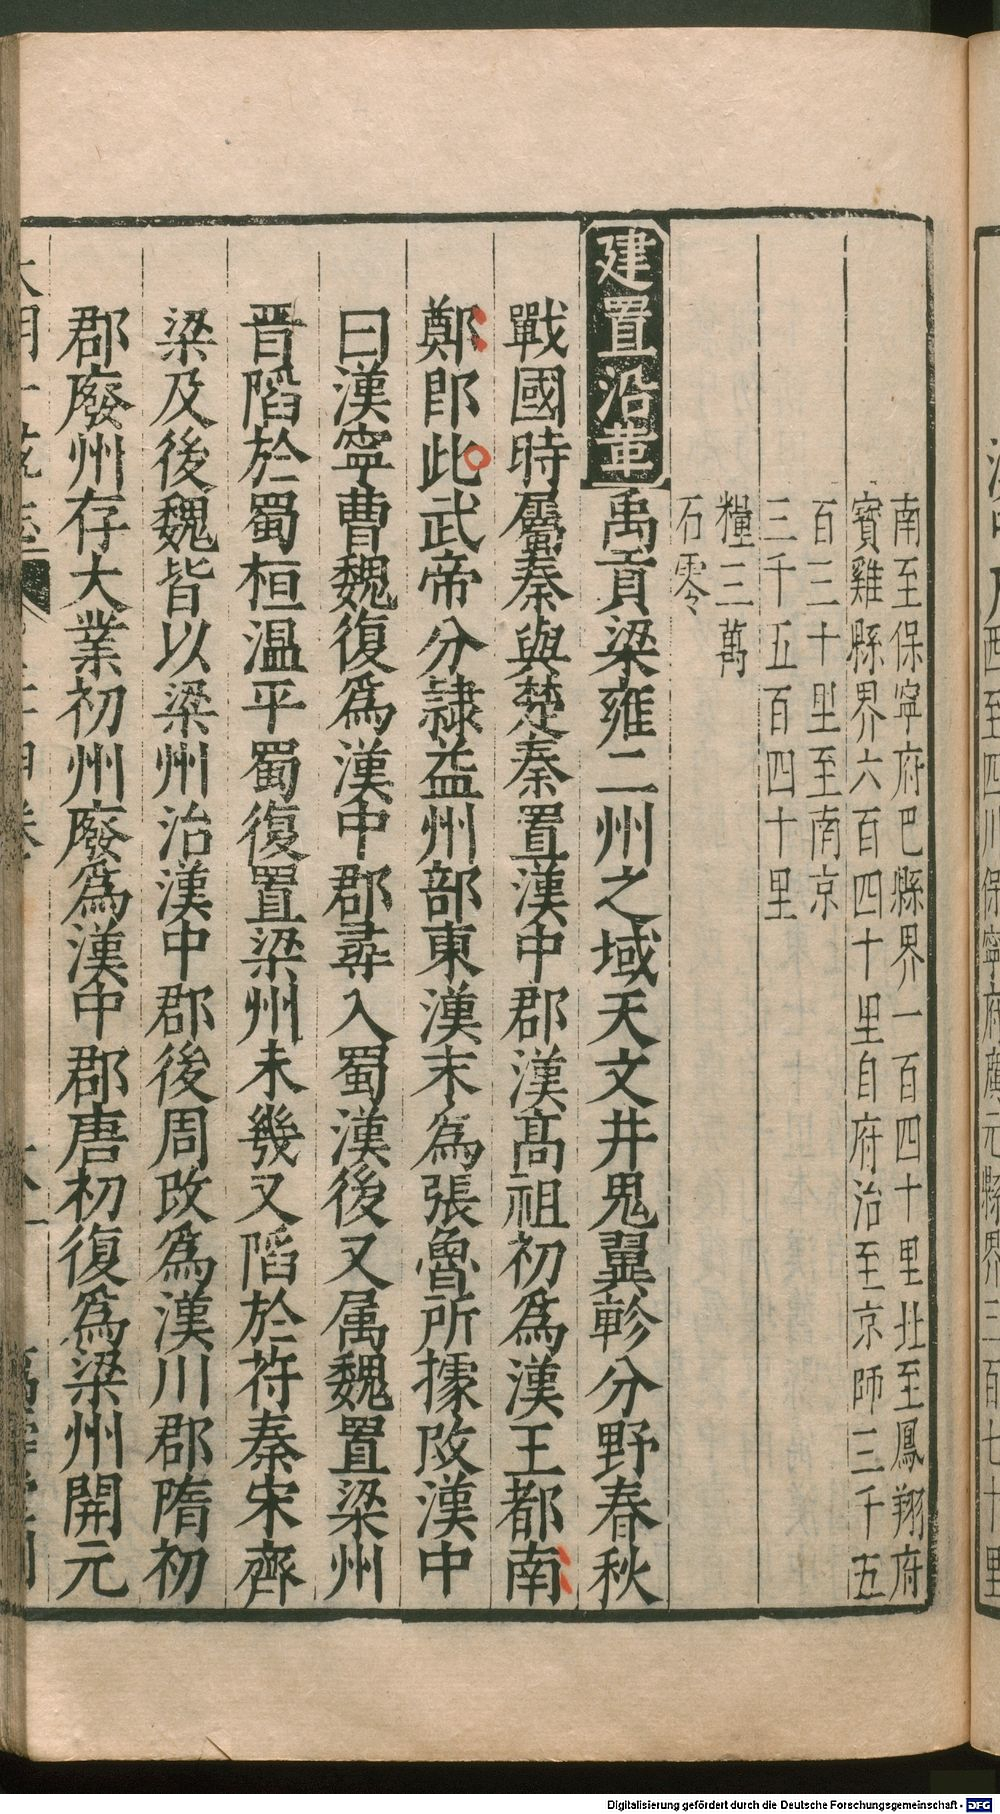 南至保寧府巴縣界一百四十里北至鳳翔府
寳雞縣界六百四十里自府治至京師三千五
百三十里至南京
三千五百四十里
糧三萬
石零
建置沿革
禹貢梁雍二州之域天文井鬼翼軫分野春秋
戰國時屬秦與楚秦置漢中郡漢髙祖初爲漢王都南
鄭即此武帝分隷益州部東漢末爲張魯所據改漢中
曰漢寧曹魏復爲漢中郡尋入蜀漢後又属魏置梁州
晋陷於蜀桓温平蜀復置梁州未幾又陷於苻秦宋齊
梁及後魏皆以梁州治漢中郡後周改爲漢川郡隋初
郡廢州存大業初州廢爲漢中郡唐初復爲梁州開元
西至四川保寧府廣元縣界三百七十里
Digitalisierung gefördert durch die Deutsche Forschungsgemeinschaft - DFG